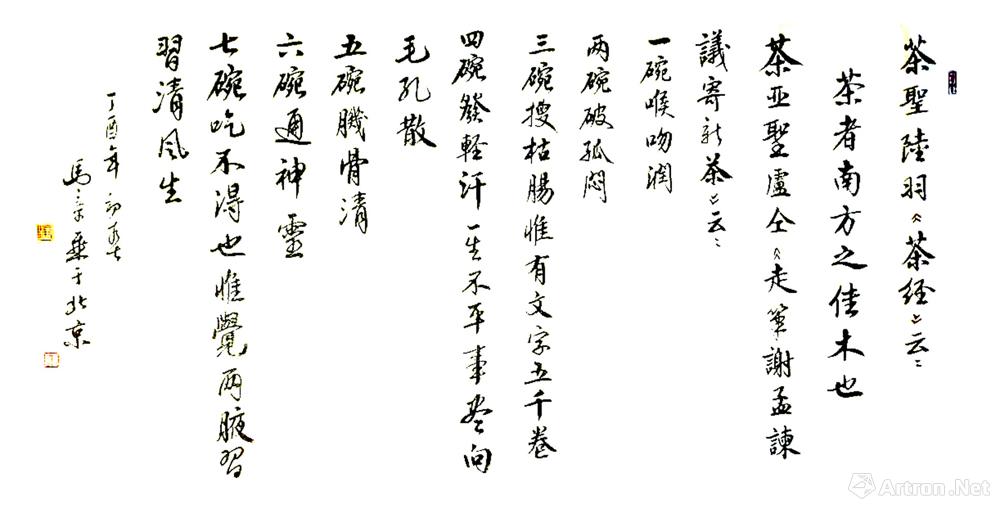 茶聖陸羽《茶经》云：
茶者南方之佳木也
茶亚聖盧仝《走笔謝孟諫
議寄新茶》云：
一碗喉吻润
两碗破孤悶
三碗搜枯腸惟有文字五千卷
四碗發軽汗一生不平事尽向
毛孔散
五碗肌骨清
六碗通神靈
七碗吃不得也惟覺两腋習
習清風生
丁酉年初春
馬 于北京
Artron.Net